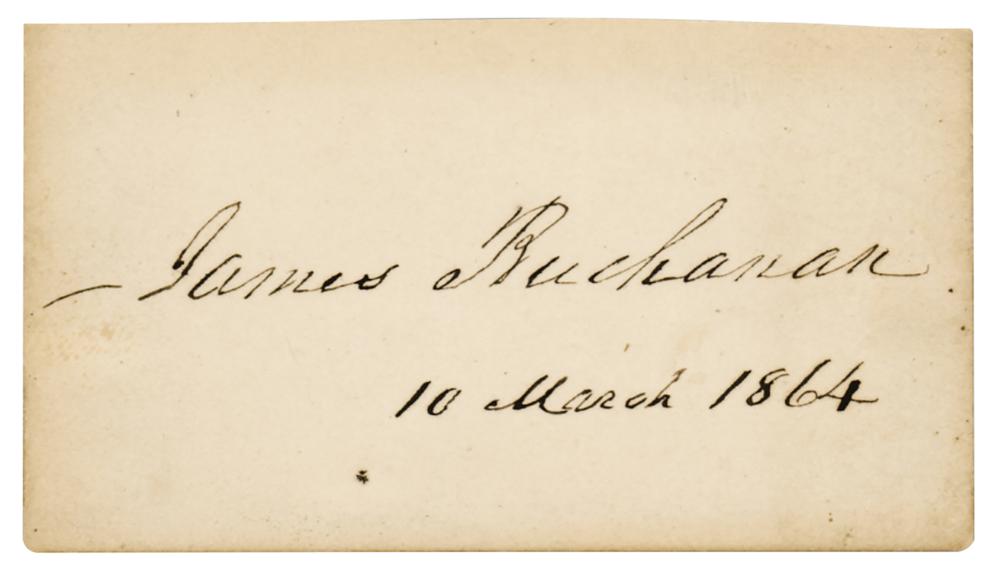 James Buchanan
10 March 1864